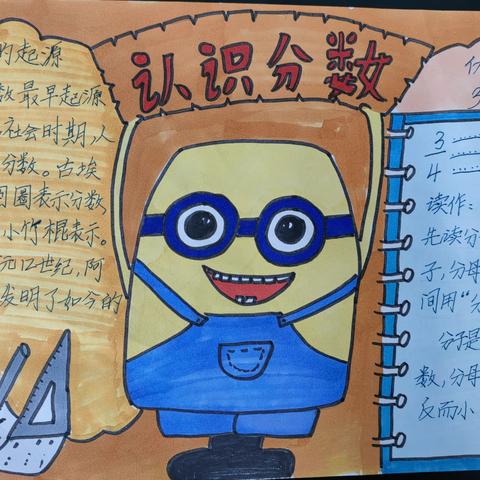 认识分数
的起源
数最早起源
社会时期,人
分数。古埃
圈表示分数,
小竹棍表示。
元12世纪,阿
发明了如今的
3
4
读作:
先读分
子,分母
间用“分
分子是
数,分母
反而小